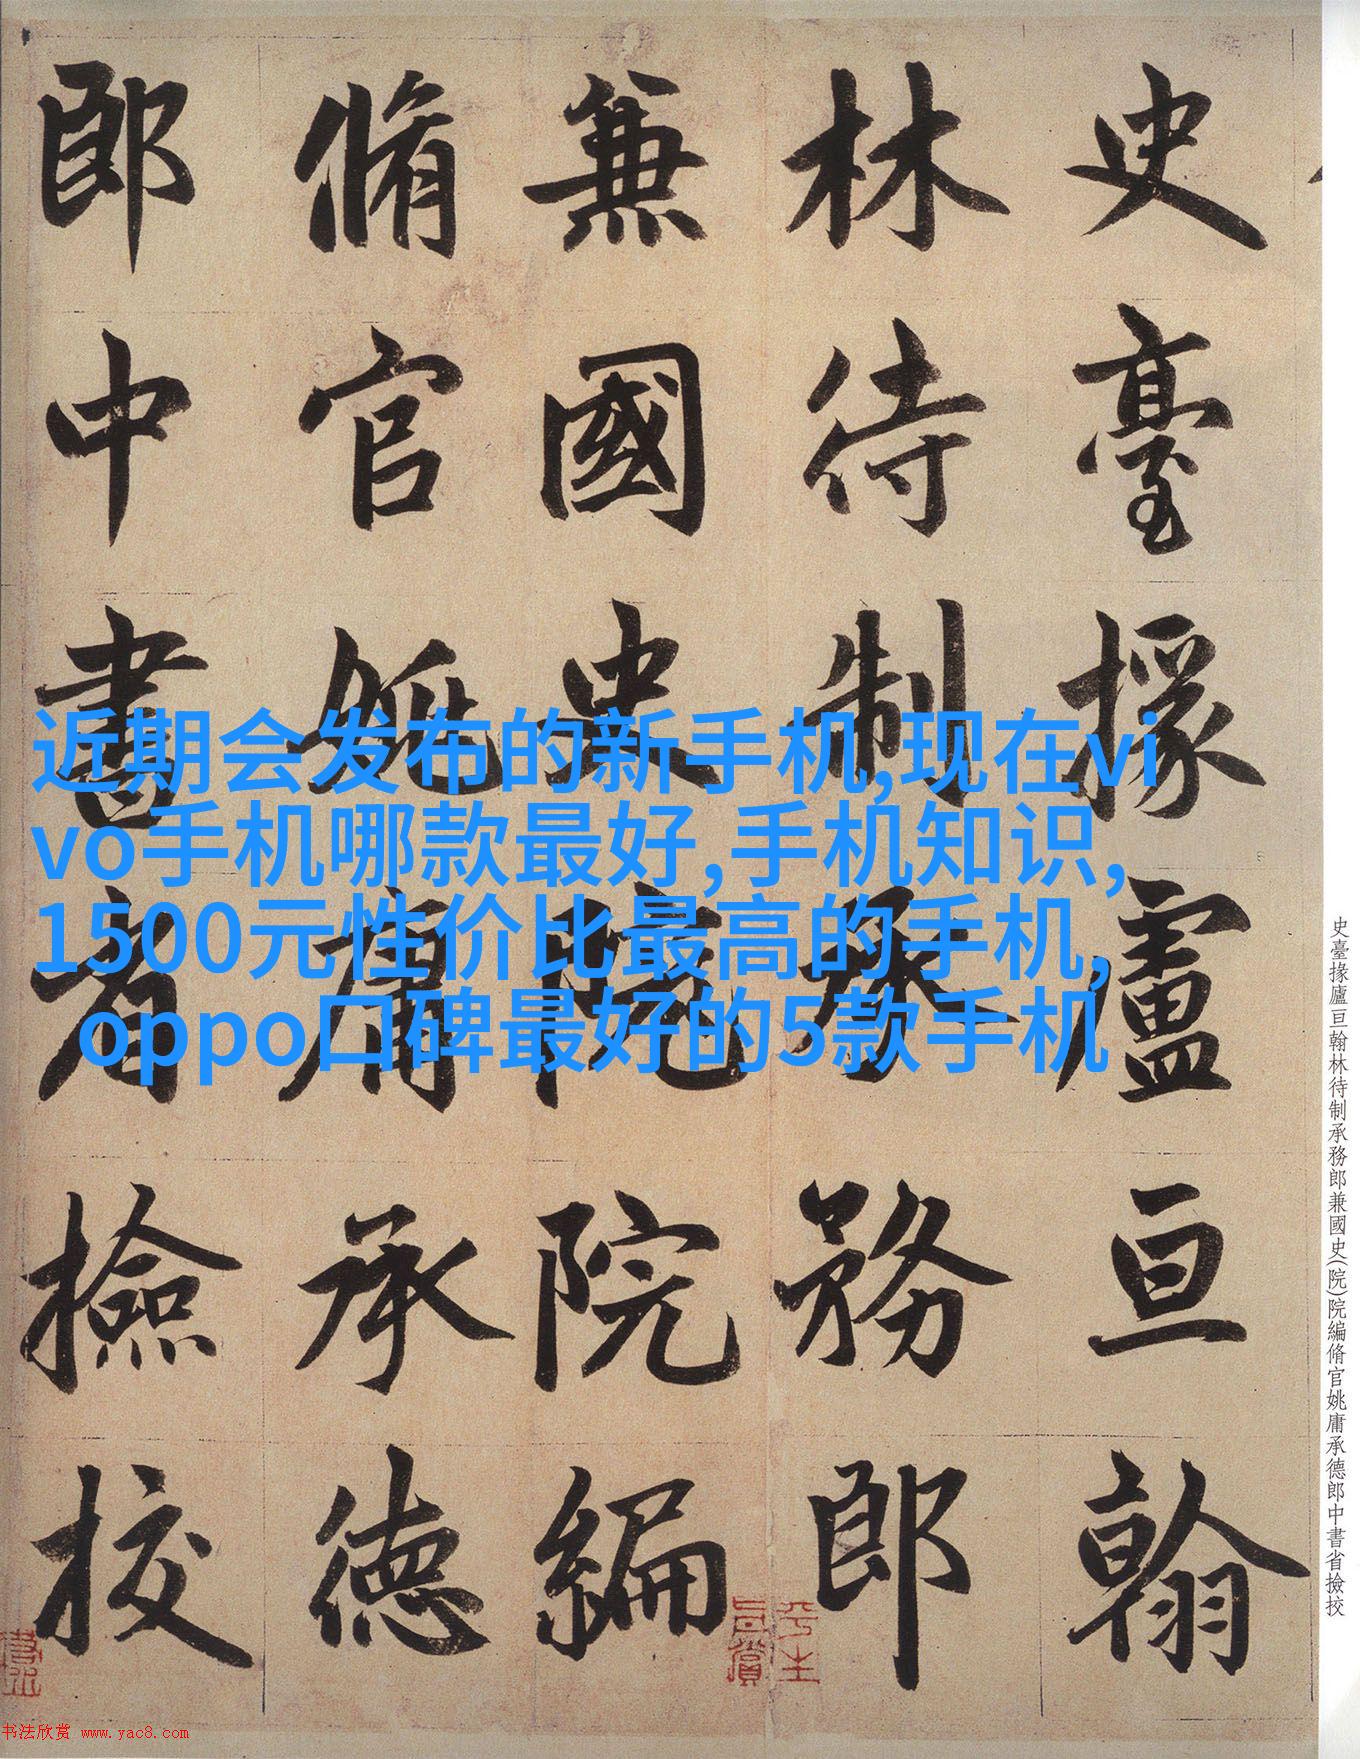 史臺掾盧亘翰
林待制承務郎
兼國史院院編
脩官姚庸承德
郎中書省撿挍
史臺掾廬亘翰林待制承務郎兼國史(院)院編脩官姚庸承德郎中書省撿挍
近期会发布的新手机,现在vi
vo手机哪款最好,手机知识,
1500元性价比最高的手机,
oppo口碑最好的5款手机
书法欣赏 www.yac8.com